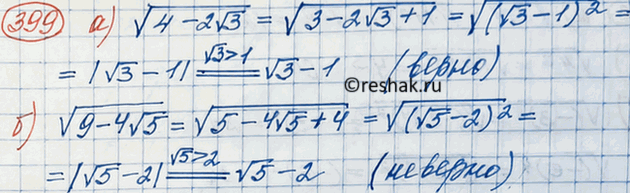 399 а) √(4-2√3) = √(3-2√3+1) = √((√3-1)²) =
= |√3-1| =(√3>1)= √3-1 (верно)
©reshak.ru
б) √(9-4√5) = √(5-4√5+4) = √((√5-2)²) =
= |√5-2| =(√5>2)= √5-2 (неверно)